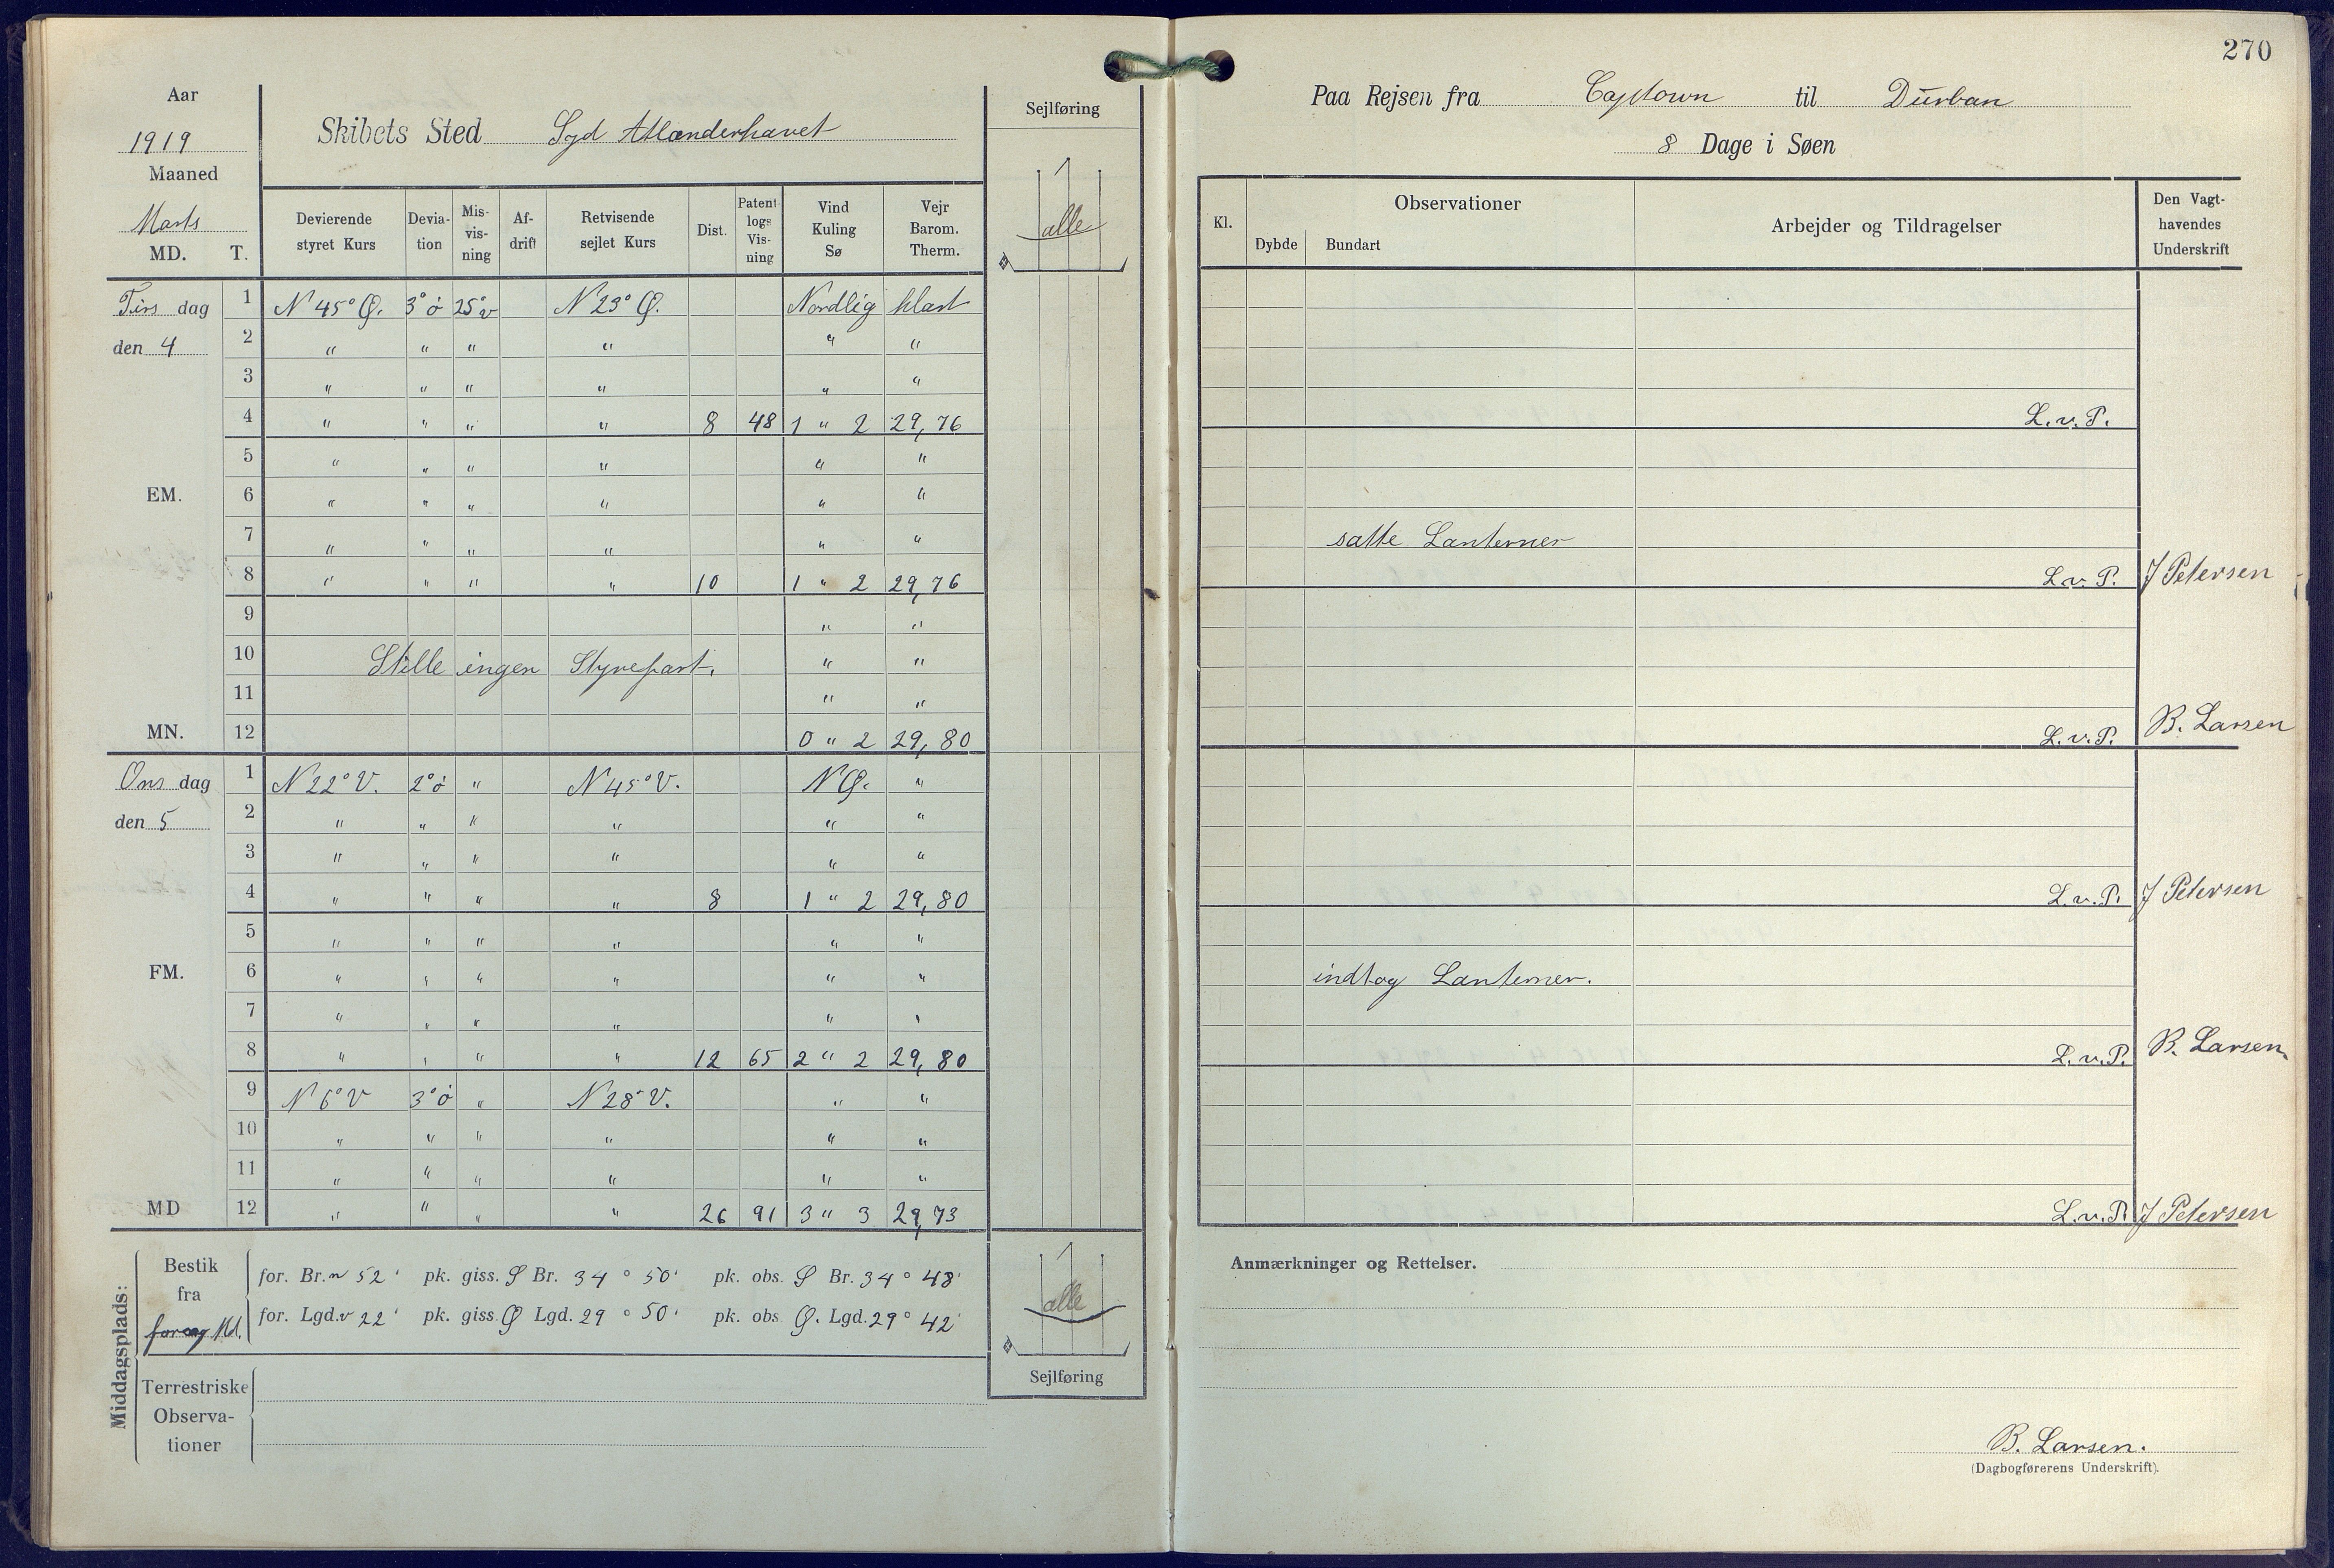 270
Aar
1919
Maaned
Marts
MD. T.
Skibets Sted Syd Atlanderhavet
Sejlføring
alle
Paa Rejsen fra Captown til Durban
8 Dage i Søen
Devierende styret Kurs
Devia-tion
Mis-vis-ning
Af-drift
Retvisende sejlet Kurs
Dist.
Patent logs Vis-ning
Vind Kuling Sø
Vejr Barom. Therm.
Kl.
Observationer
Dybde Bundart
Arbejder og Tildragelser
Den Vagt-havendes Underskrift
Tirs dag 1 N 45° Ø. 3° ö 25° v N 23° Ø. Nordlig klart
den 4 2 " " " " " "
3 " " " " " "
4 " " " " 8 48 1 " 2 29,76 L.v.P.
5 " " " " " "
EM. 6 " " " " " "
7 " " " " " " satte Lanterner
8 " " " " 10 1 " 2 29,76 L.v.P. J Petersen
9 " "
10 Stille ingen Styrefart. " "
11 " "
MN. 12 0 " 2 29,80 L.v.P. B. Larsen
Ons dag 1 N 22° V. 2° ö " N 45° V. N Ø. "
den 5 2 " " " " " "
3 " " " " " "
4 " " " " 8 1 " 2 29,80 L.v.P. J Petersen
5 " " " " " "
FM. 6 " " " " " " indtog Lanterner.
7 " " " " " "
8 " " " " 12 65 2 " 2 29,80 L.v.P. B. Larsen.
9 N 6° V 3° ö " N 28° V. " "
10 " " " " " "
11 " " " " " "
MD 12 " " " " 26 91 3 " 3 29,73 L.v.P. J Petersen
Middagsplads:
Bestik
fra
for. Br. n 52' pk. giss. S Br. 34° 50' pk. obs. S Br. 34° 48'
for. Lgd. v 22' pk. giss. Ø Lgd. 29° 50' pk. obs. Ø. Lgd. 29° 42'
Terrestriske
Observa-
tioner
alle
Sejlføring
Anmærkninger og Rettelser.
B. Larsen.
(Dagbogførerens Underskrift).